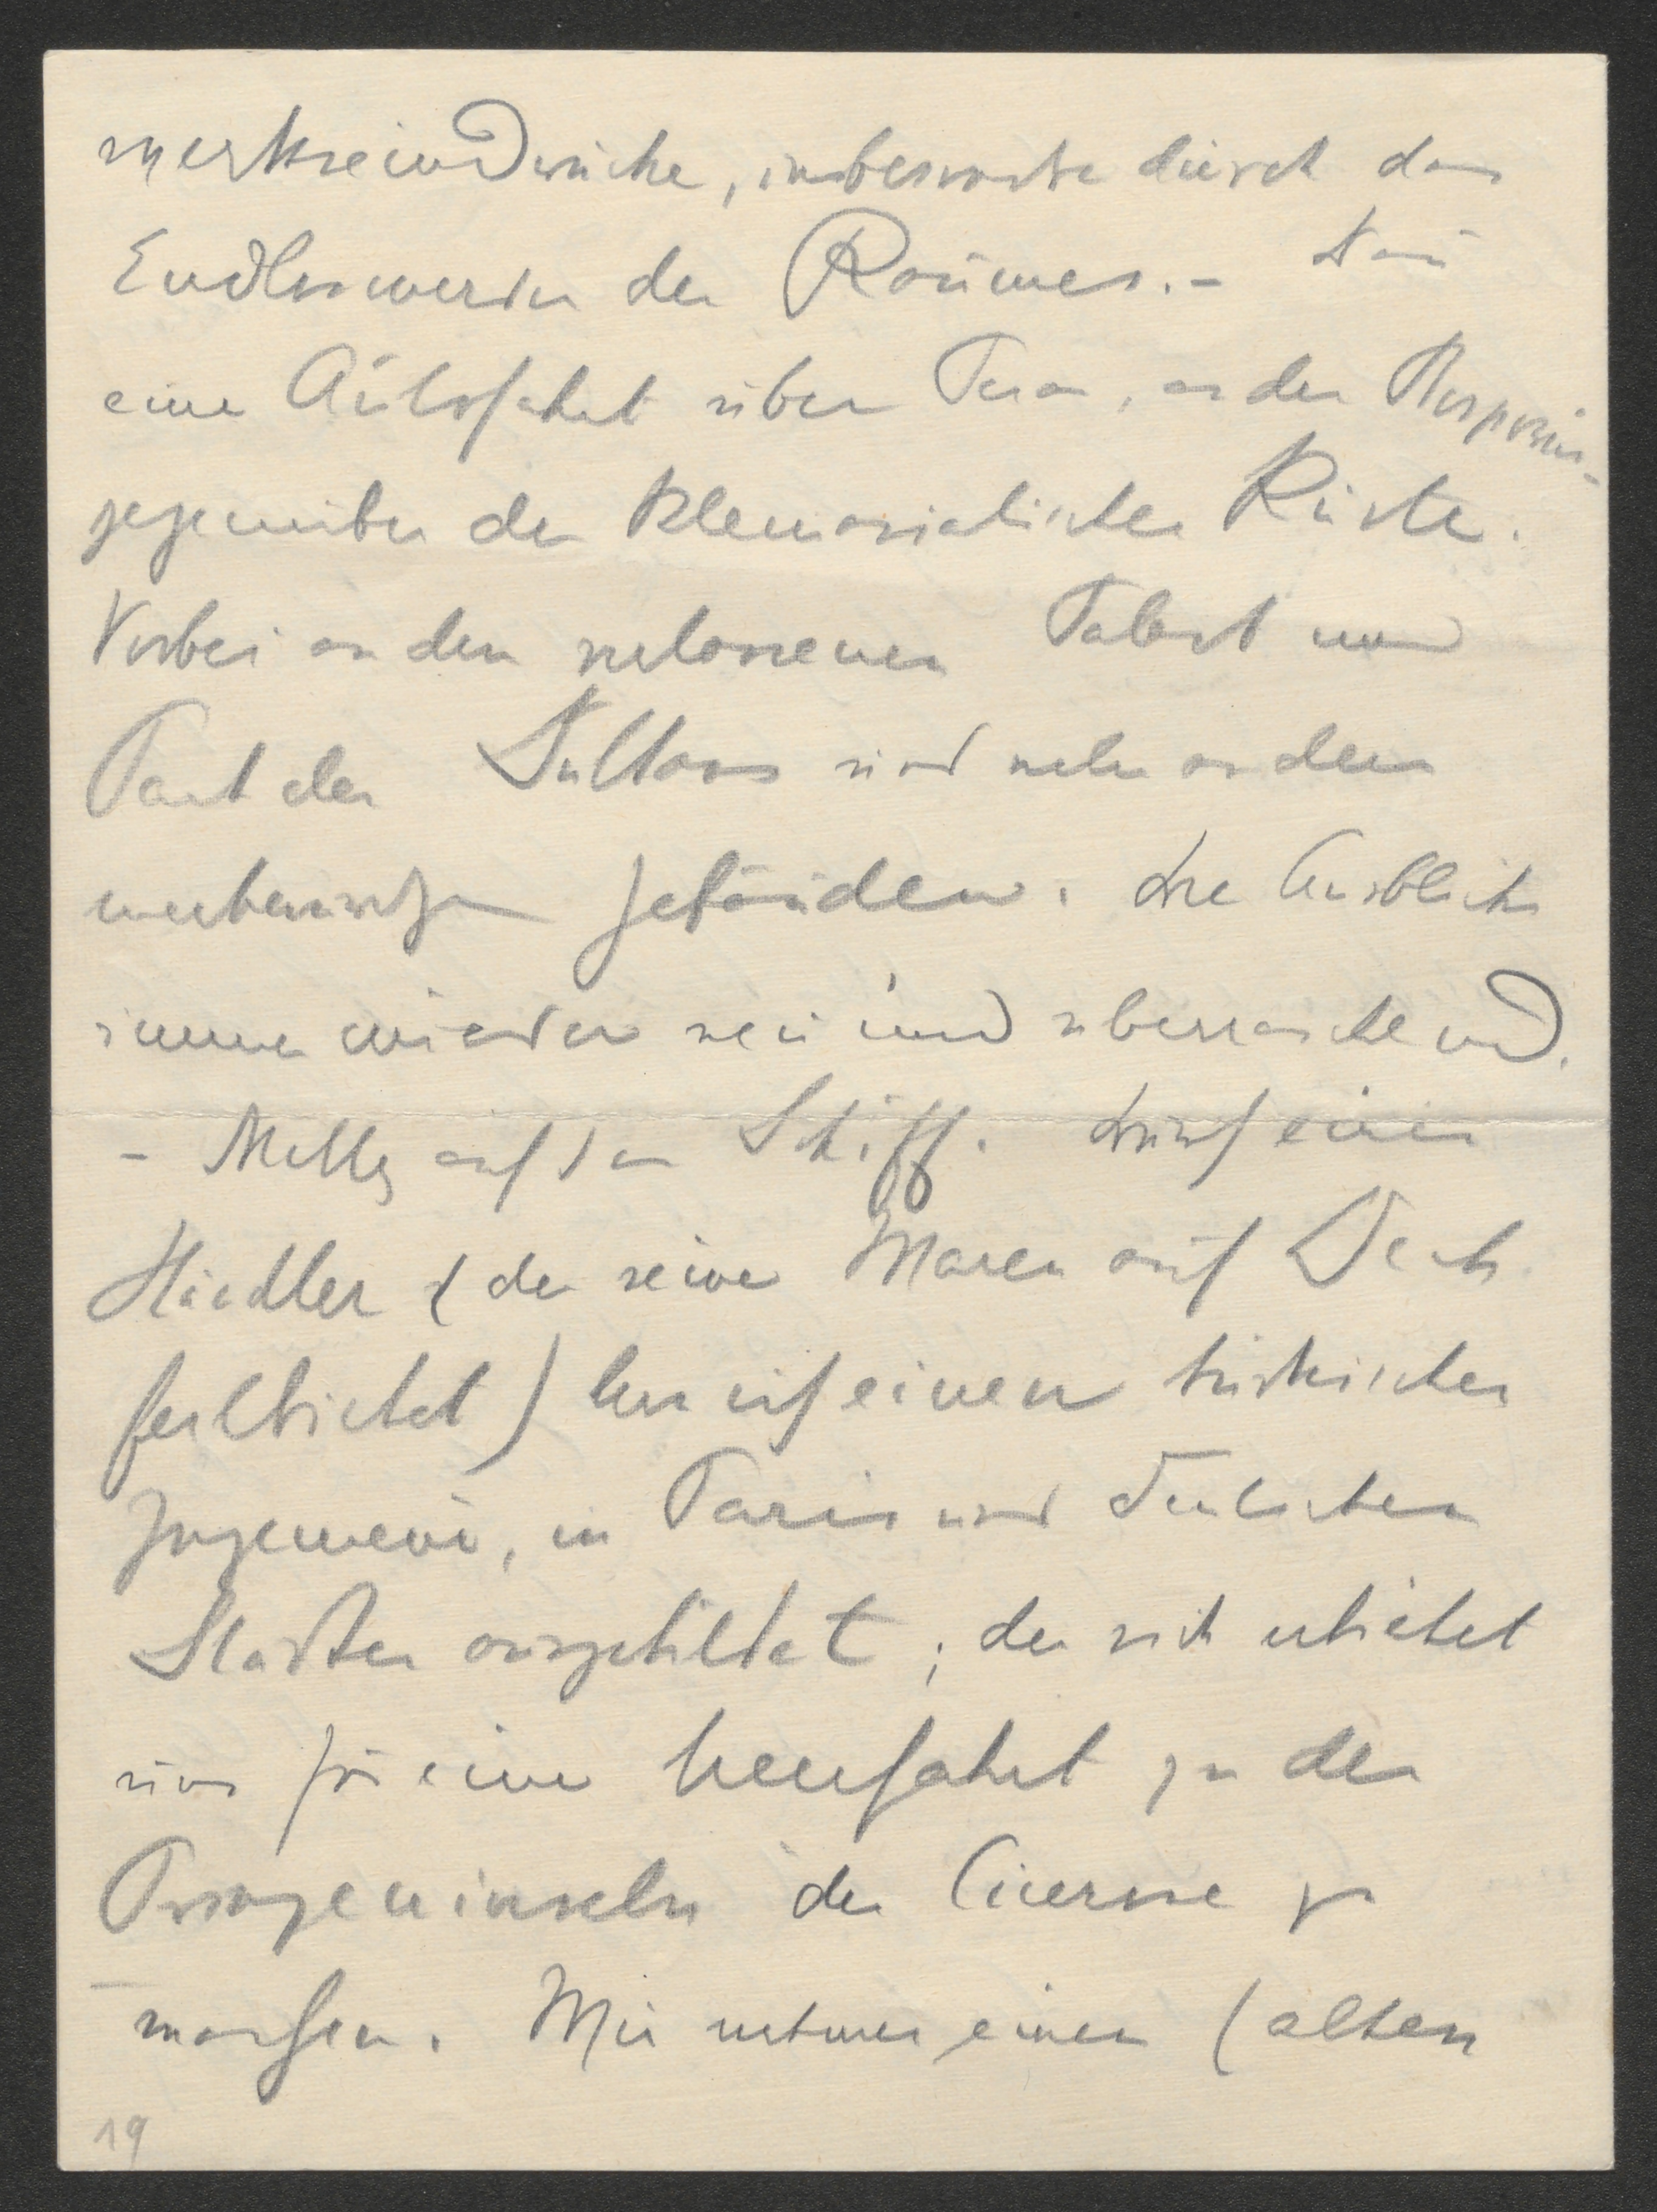 werkseindrücke, insbesondere durch das
Endloswerden des Raumes. - Dann
eine Autofahrt über Pera, an den Bosporus -
gegenüber der kleinasiatischen Küste.
Vorbei an dem verlassenen Palast und
Park des Sultans und vielen anderen
Gebäuden. Die Ausblicke
immer wieder neu und überraschend.
- Mittag auf dem Schiff. Durch einen
Händler (der seine Waren auf Deck
feilbietet) lernen wir einen türkischen
Ingenieur, in Paris und deutschen
Städten ausgebildet, der sich erbietet
uns für eine Meerfahrt zu den
Prinzeninseln den Cicerone zu
machen. Wir nehmen einen (alten
19